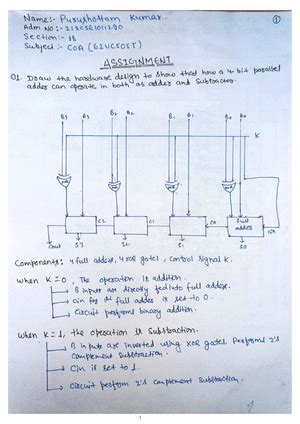 Name:- Purushottam Kumar.
①
Adm. No:- 21SCSE1011290
Section:- 18
Subject:- COA (E2UC505T)
ASSIGNMENT
Q1. Draw the hardware design to show that how a 4 bit parallel
adder can operate in both as adder and subtractor.
B3 A3 B2 A2 B1 A1 B0 A0
K
Full
adder
C3 C2 C1 C0
Cout S3 S2 S1 S0
Components: 4 full adders, 4 XOR gates, control signal K.
When K=0, The operation is addition.
B inputs are directly fed into full adder.
Cin for 1st full adder is set to 0.
Circuit performs binary addition.
When K=1, the operation is subtraction.
B inputs are inverted using XOR gates Performs 2's
Complement Subtraction.
Cin is set to 1.
Circuit perform 2's complement subtraction.
1